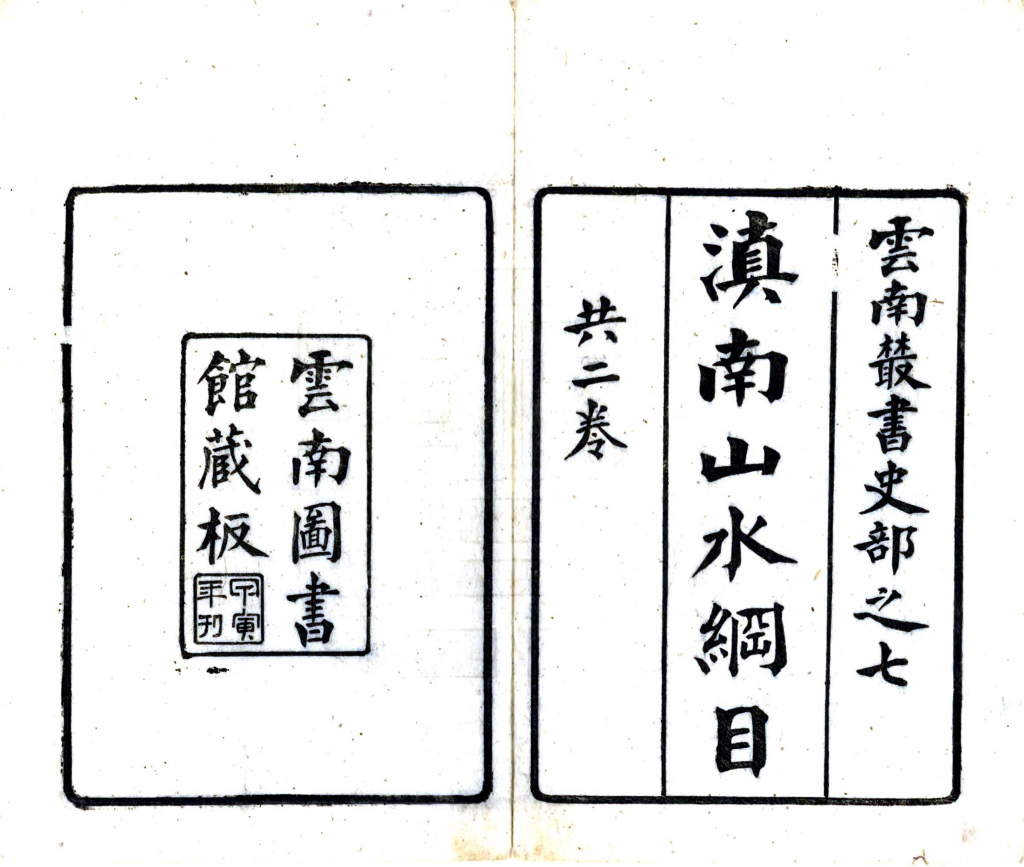 雲南叢書史部之七
滇南山水綱目
共二卷
雲南圖書
館藏板
甲寅
年刊